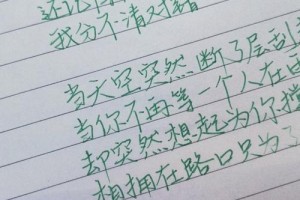 还记
我分不清对错
当天空突然断了层
当你不再等一个人在
却突然想起为你
相拥在路口只为了